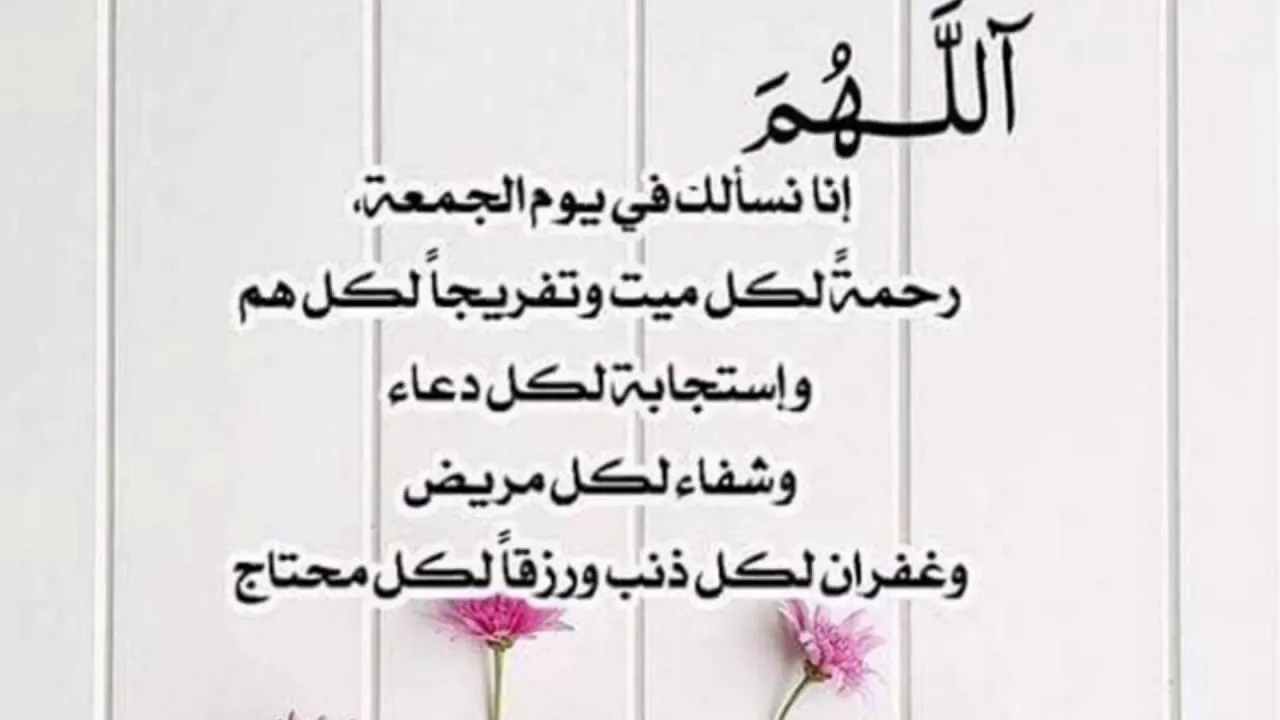 آللَّـهُمَ
إنا نسألك في يوم الجمعة،
رحمةً لكل ميت وتفريجاً لكل هم
وإستجابة لكل دعاء
وشفاء لكل مريض
وغفران لكل ذنب ورزقاً لكل محتاج